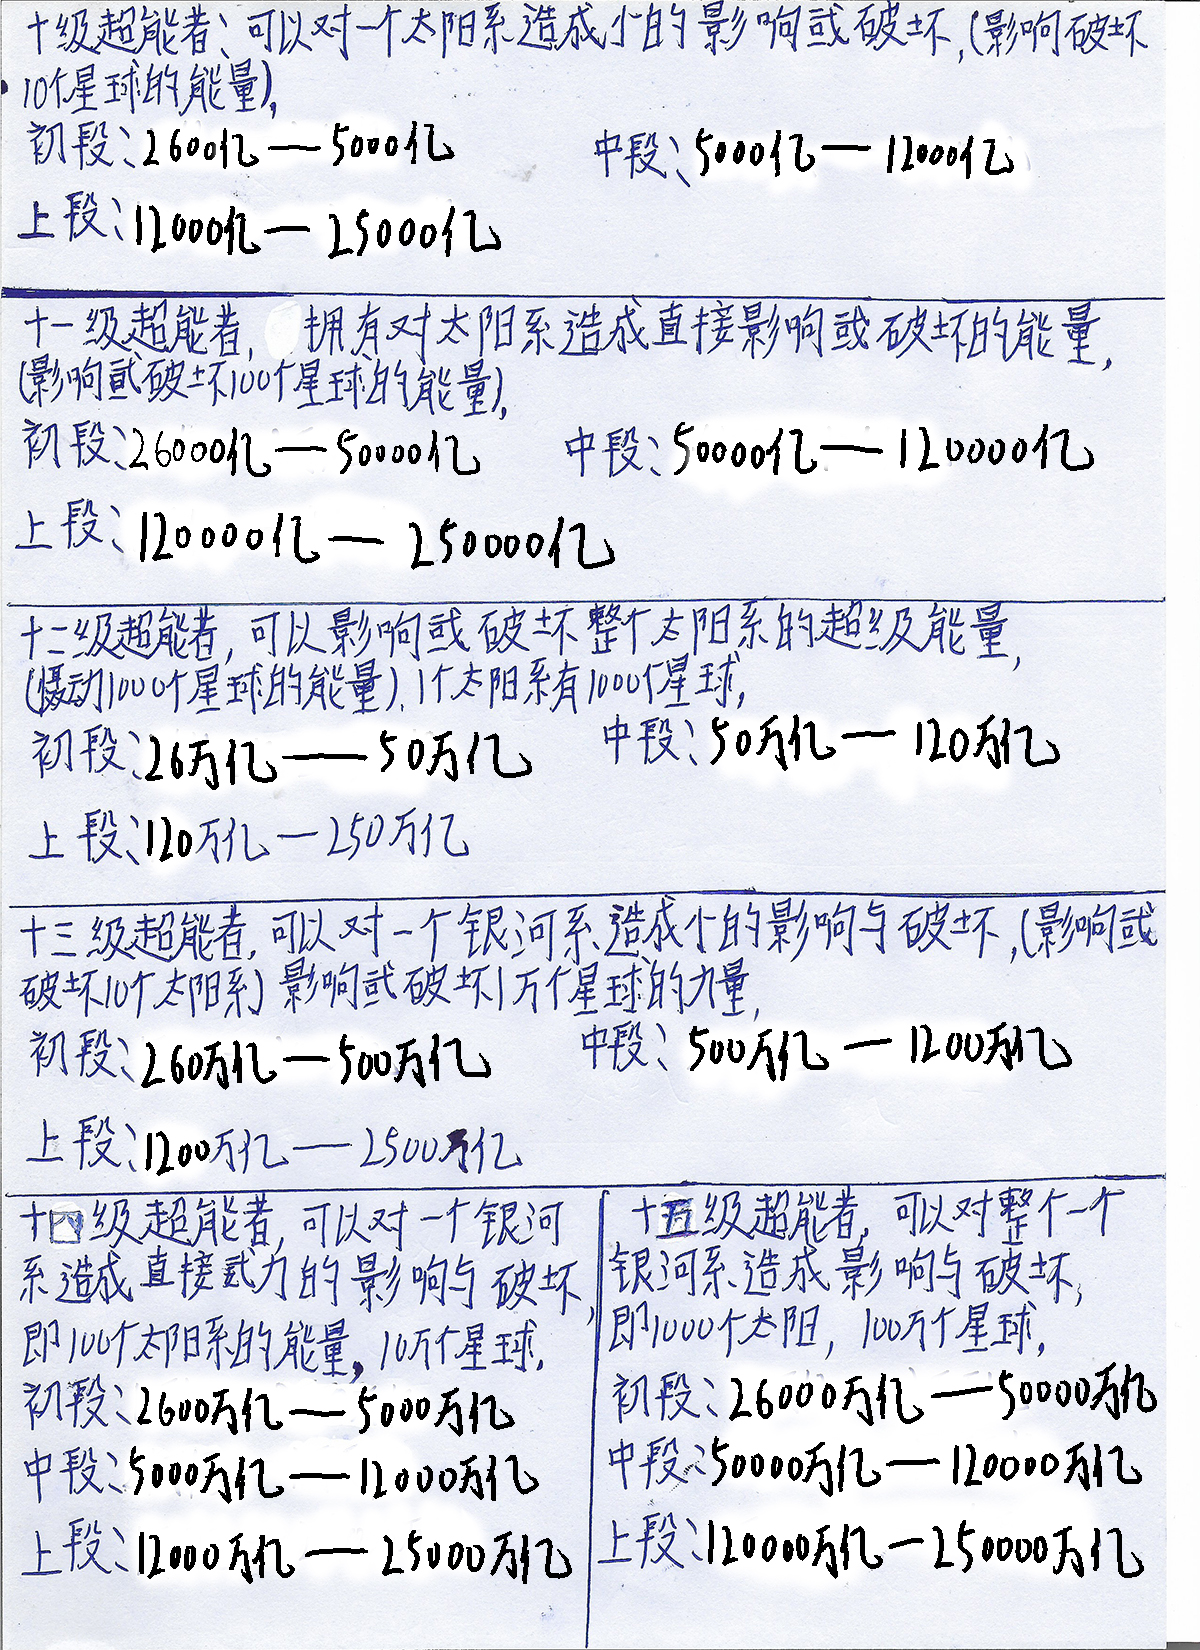 十级超能者、可以对一个太阳系造成小的影响或破坏,(影响破坏
10个星球的能量),
初段:2600亿—5000亿 中段:5000亿—12000亿
上段:12000亿—25000亿
十一级超能者, 拥有对太阳系造成直接影响或破坏的能量,
(影响或破坏100个星球的能量),
初段:26000亿—50000亿 中段:50000亿—120000亿
上段:120000亿—250000亿
十二级超能者,可以影响或破坏整个太阳系的超级能量,
(撼动1000个星球的能量).1个太阳系有1000个星球,
初段:26万亿—50万亿 中段:50万亿—120万亿
上段:120万亿—250万亿
十三级超能者,可以对一个银河系造成小的影响与破坏,(影响或
破坏10个太阳系)影响或破坏1万个星球的力量,
初段:260万亿—500万亿 中段:500万亿—1200万亿
上段:1200万亿—2500万亿
十四级超能者,可以对一个银河
系造成直接武力的影响与破坏,
即100个太阳系的能量,10万个星球.
初段:2600万亿—5000万亿
中段:5000万亿—12000万亿
上段:12000万亿—25000万亿
十五级超能者,可以对整个一个
银河系造成影响与破坏,
即1000个太阳,100万个星球,
初段:26000万亿—50000万亿
中段:50000万亿—120000万亿
上段:120000万亿—250000万亿